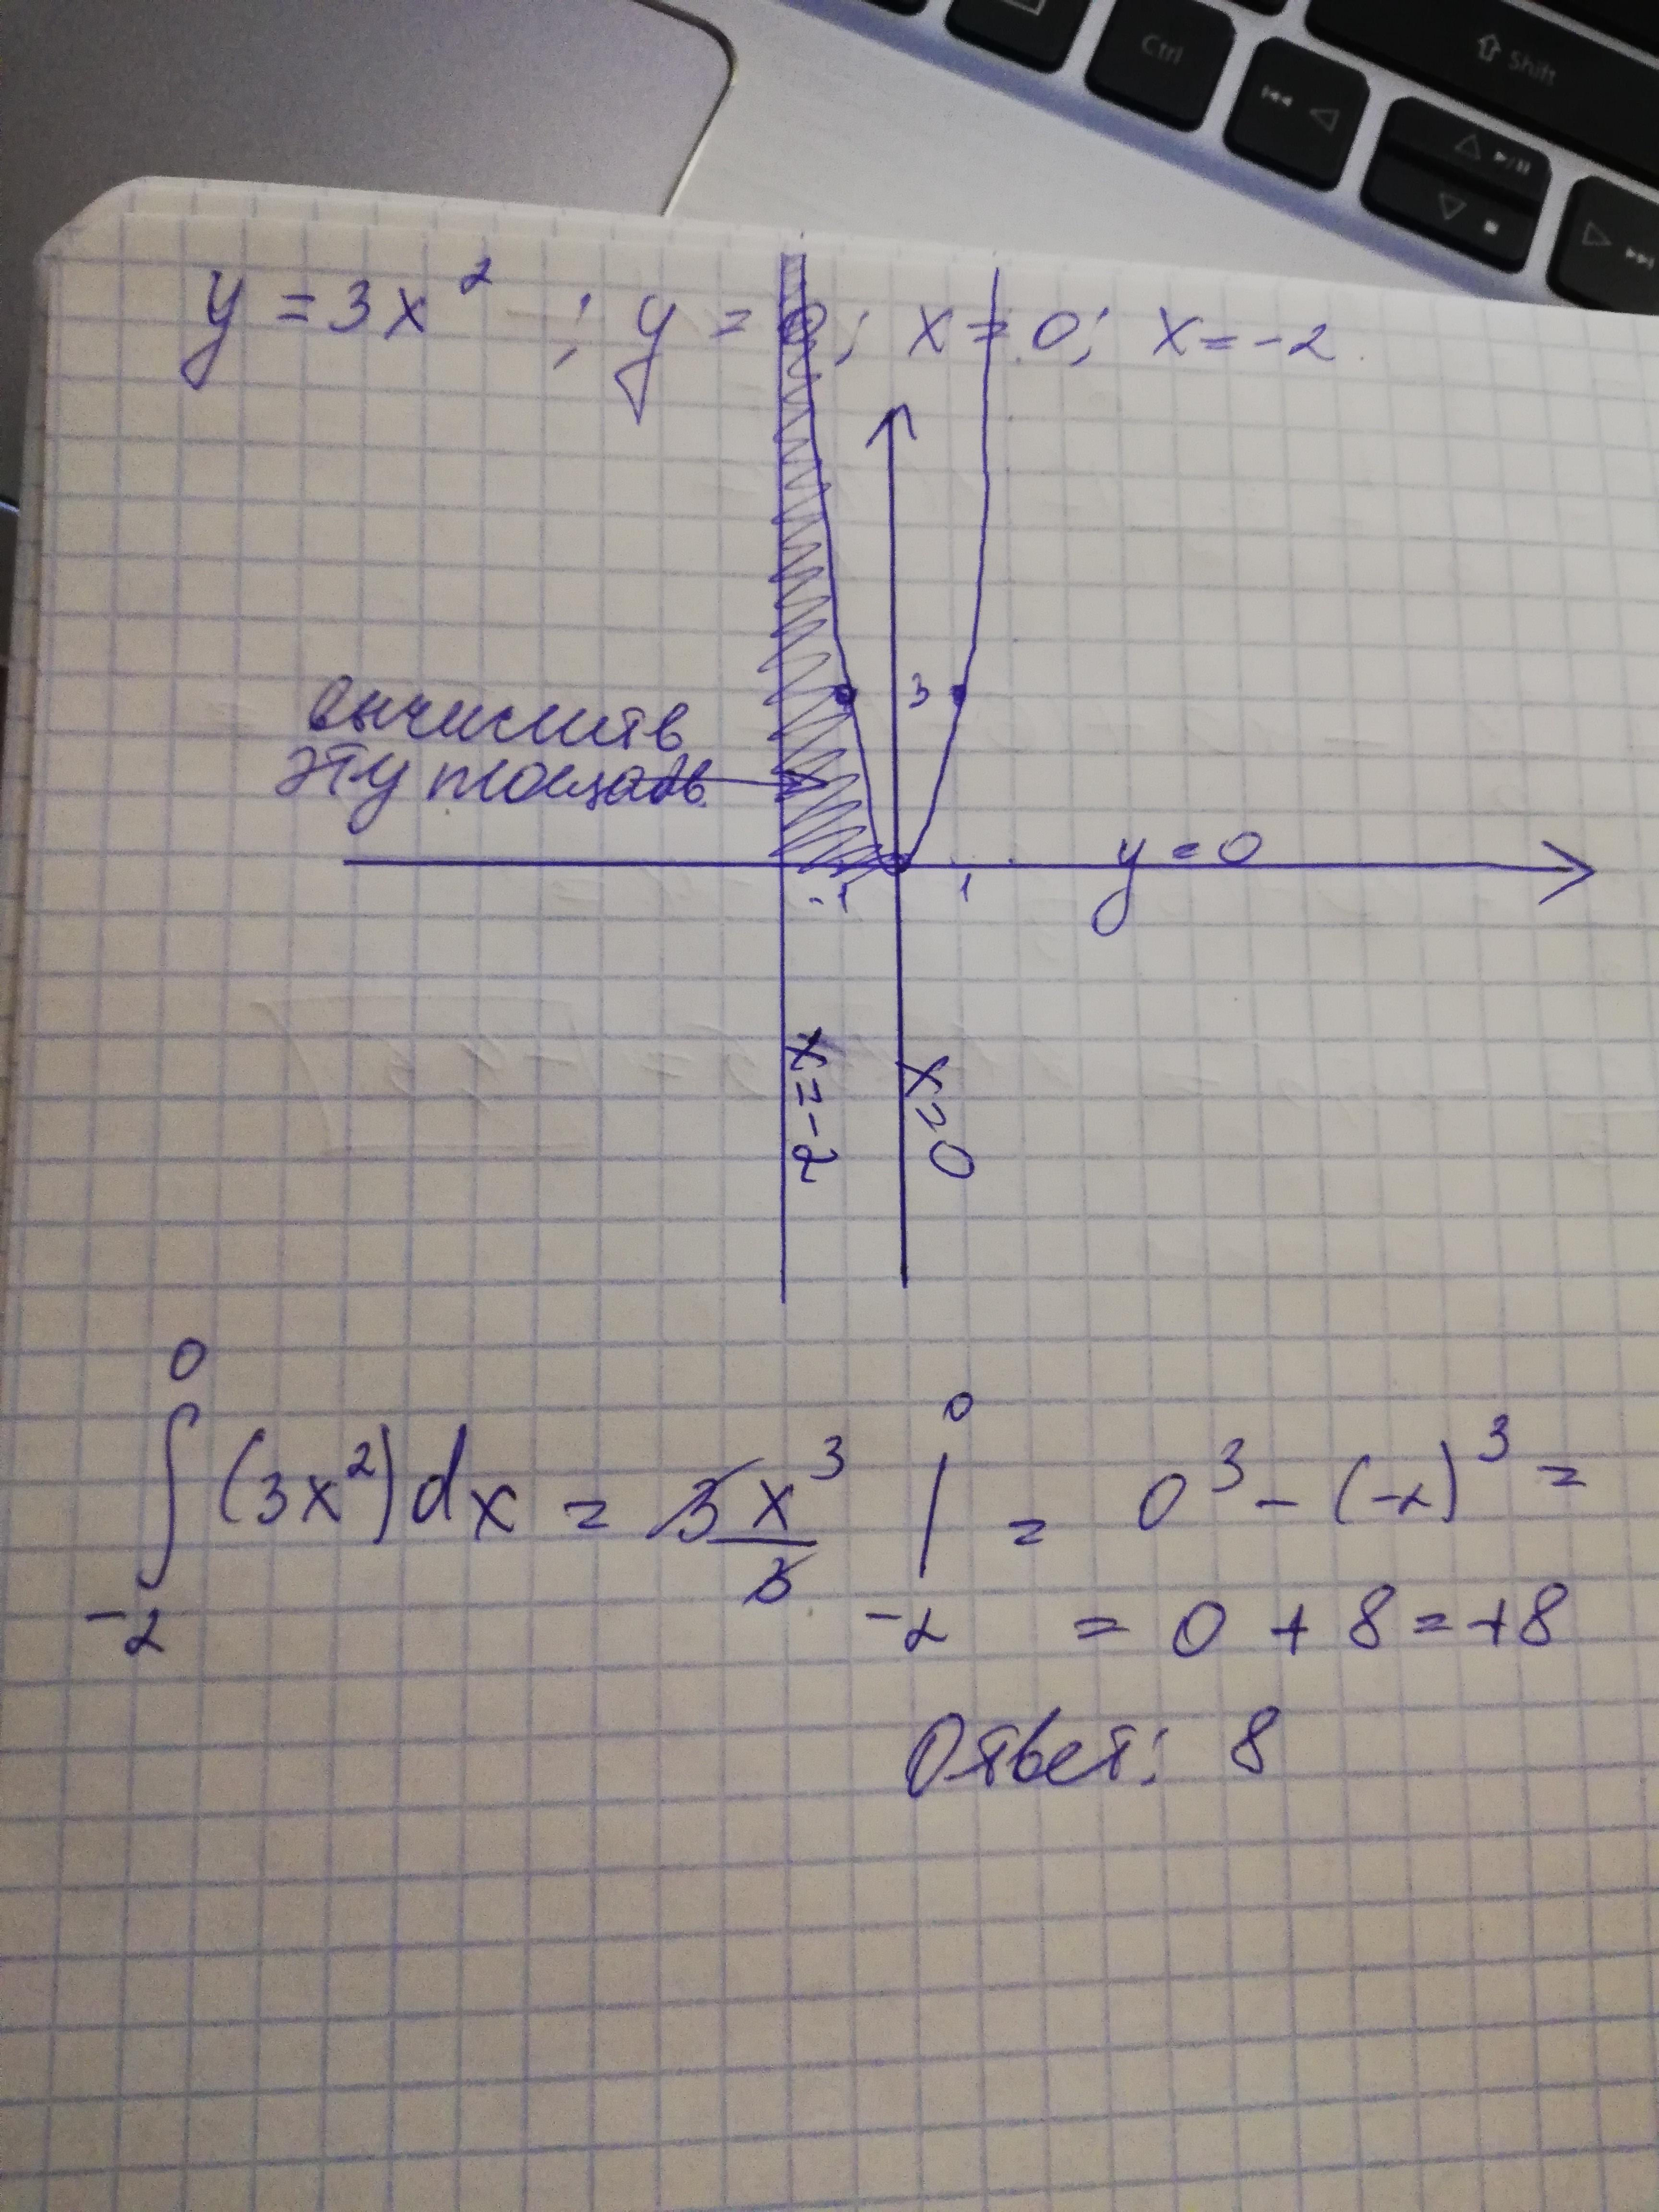 Ctrl
Shift
y = 3x² ; y = 0; x = 0; x = -2.
вычислить
эту площадь
3
-1
1
y = 0
x = -2
x = 0
0
0
∫ (3x²) dx = 3x³/3 | = 0³ - (-2)³ =
-2
-2
= 0 + 8 = +8
Ответ: 8